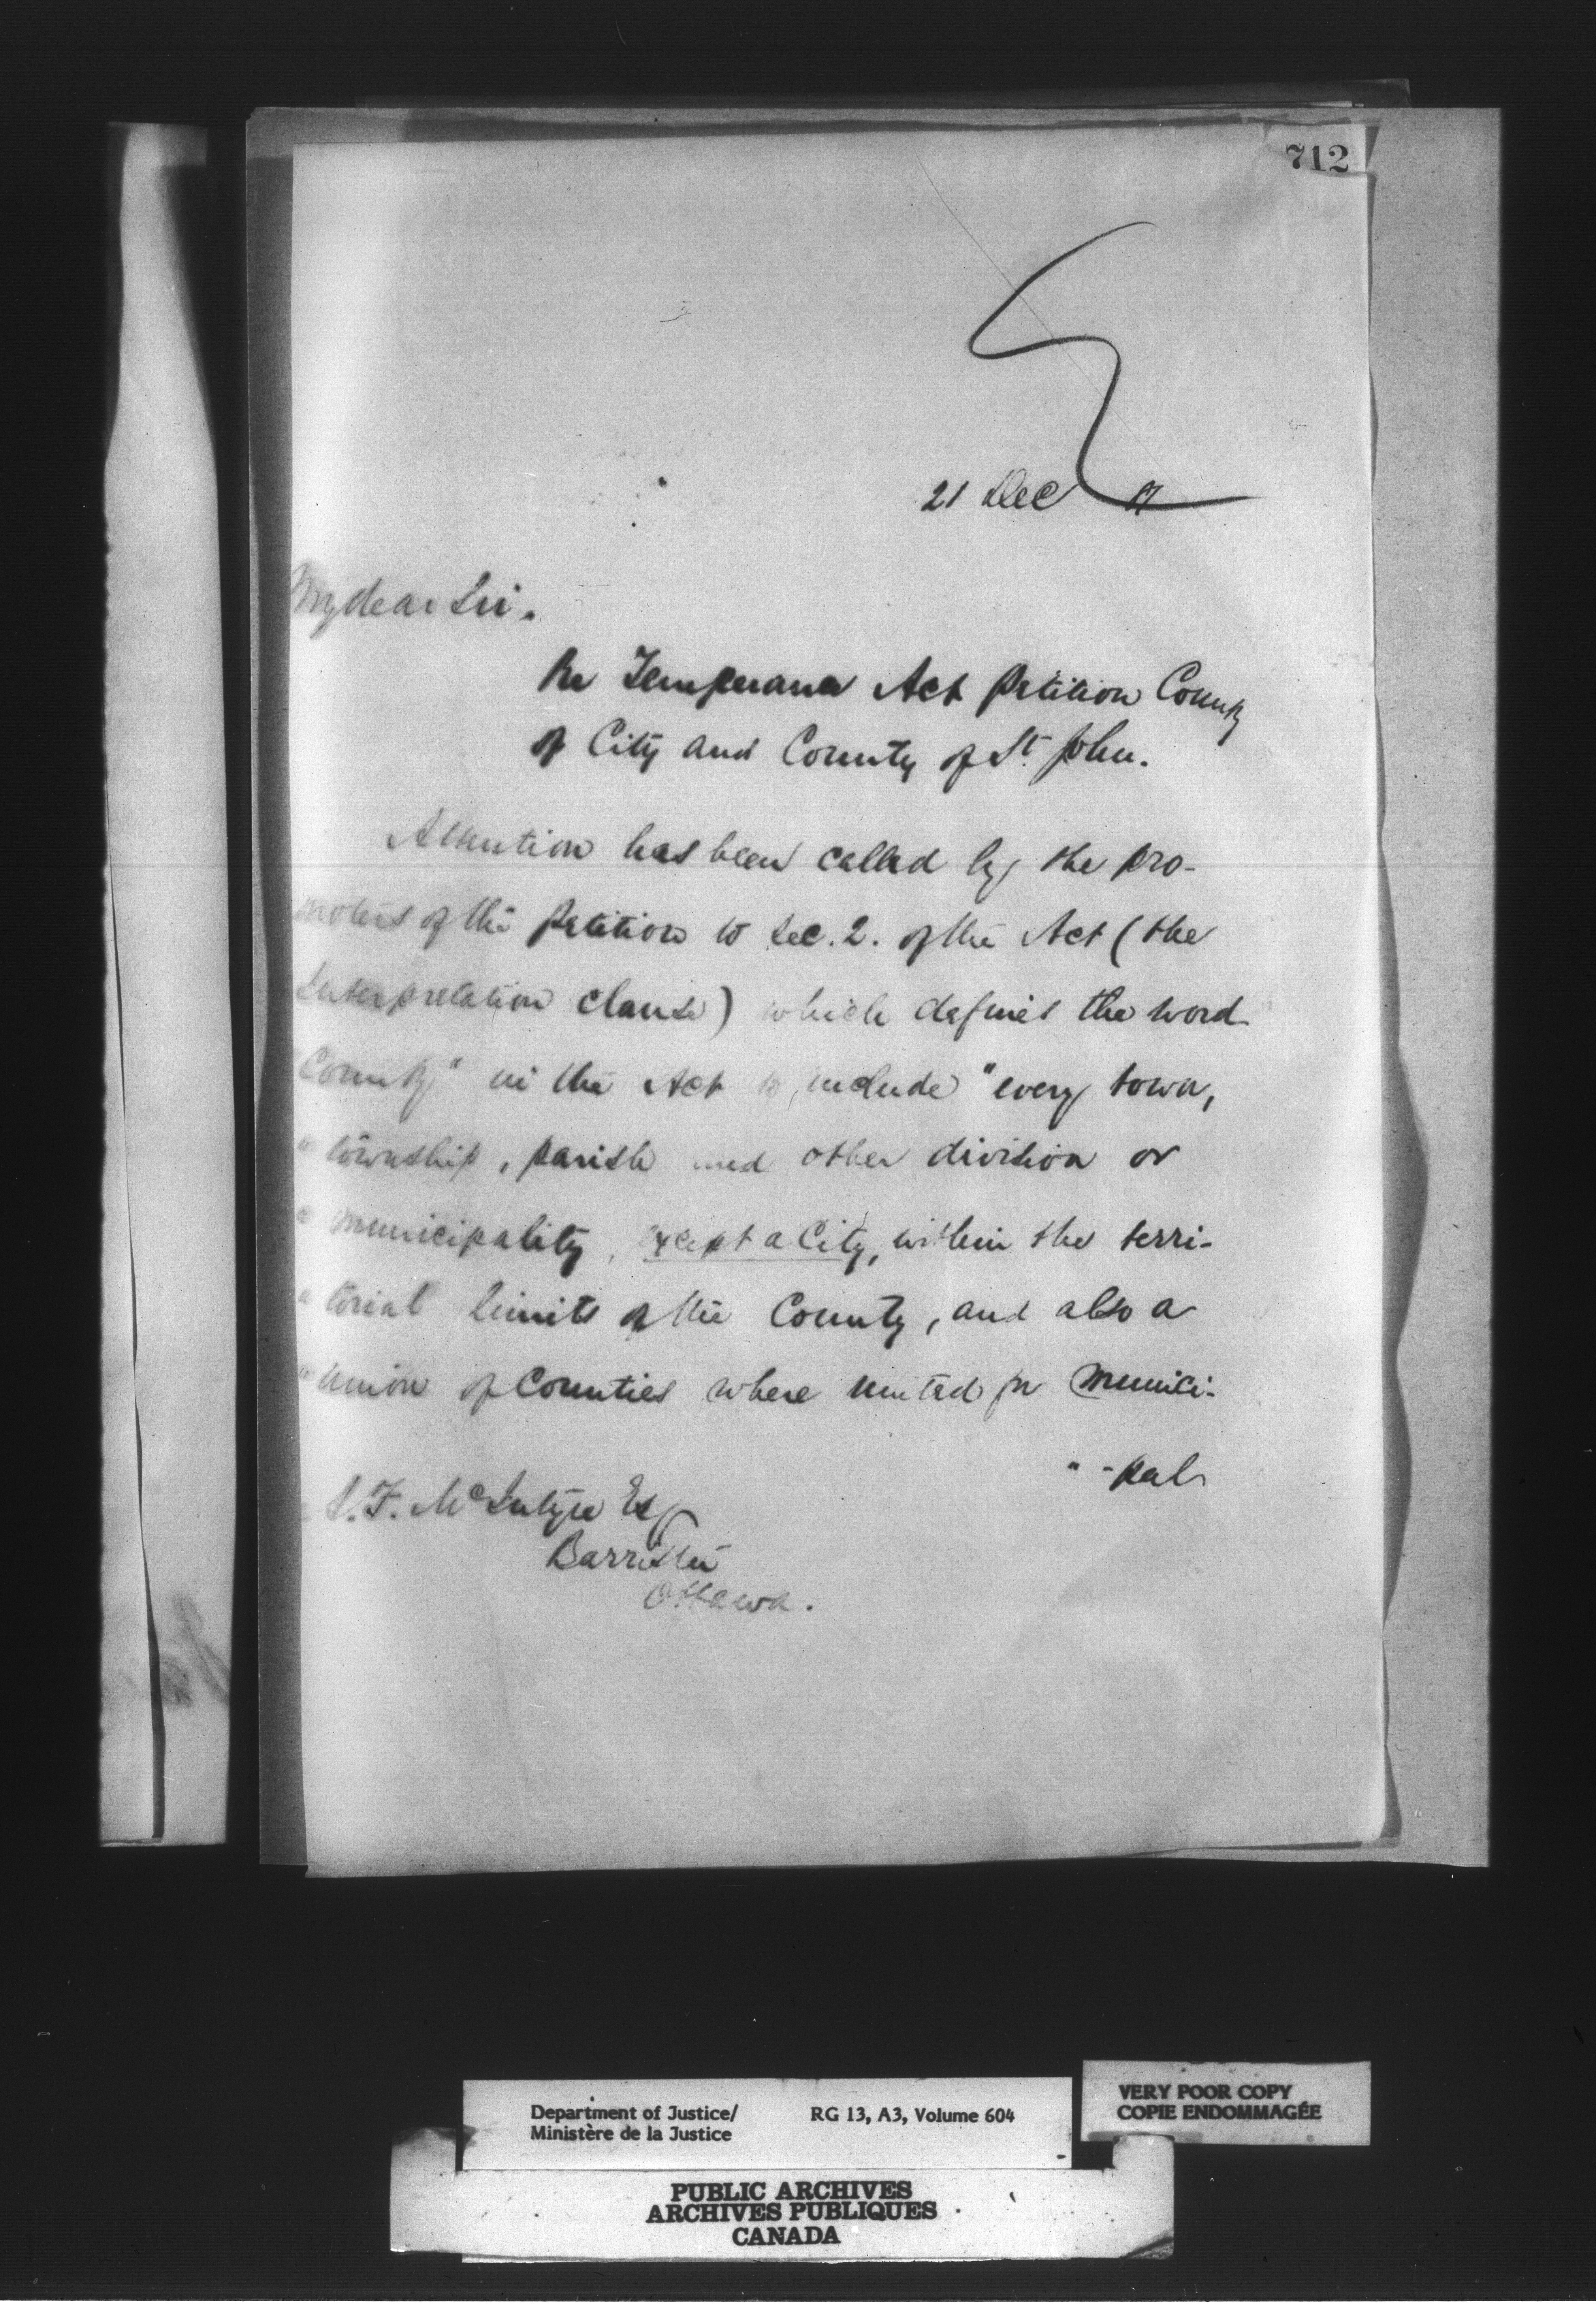 712
21 Dec
My dear Sir.
Re Temperance Act Petition County
of City and County of St. John.
Attention has been called by the pro-
moters of the petition to Sec. 2. of the Act (the
Interpretation clause) which defines the word
County" in the Act to include "every town,
" township, parish and other division or
" municipality, except a City, within the terri-
" torial limits of the County, and also a
" union of Counties where united for Munici-
" -pal
A. F. McIntyre Esq
Barrister
Ottawa.
Department of Justice/
Ministère de la Justice
RG 13, A3, Volume 604
VERY POOR COPY
COPIE ENDOMMAGÉE
PUBLIC ARCHIVES
ARCHIVES PUBLIQUES
CANADA